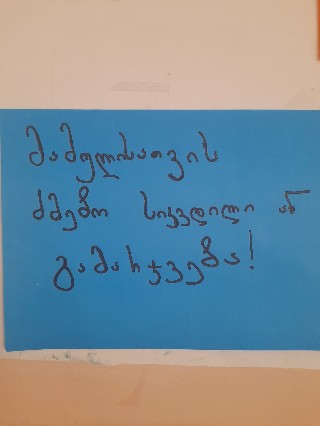 მამულისათვის
ძმებო სიკვდილი ან
გამარჯვება!